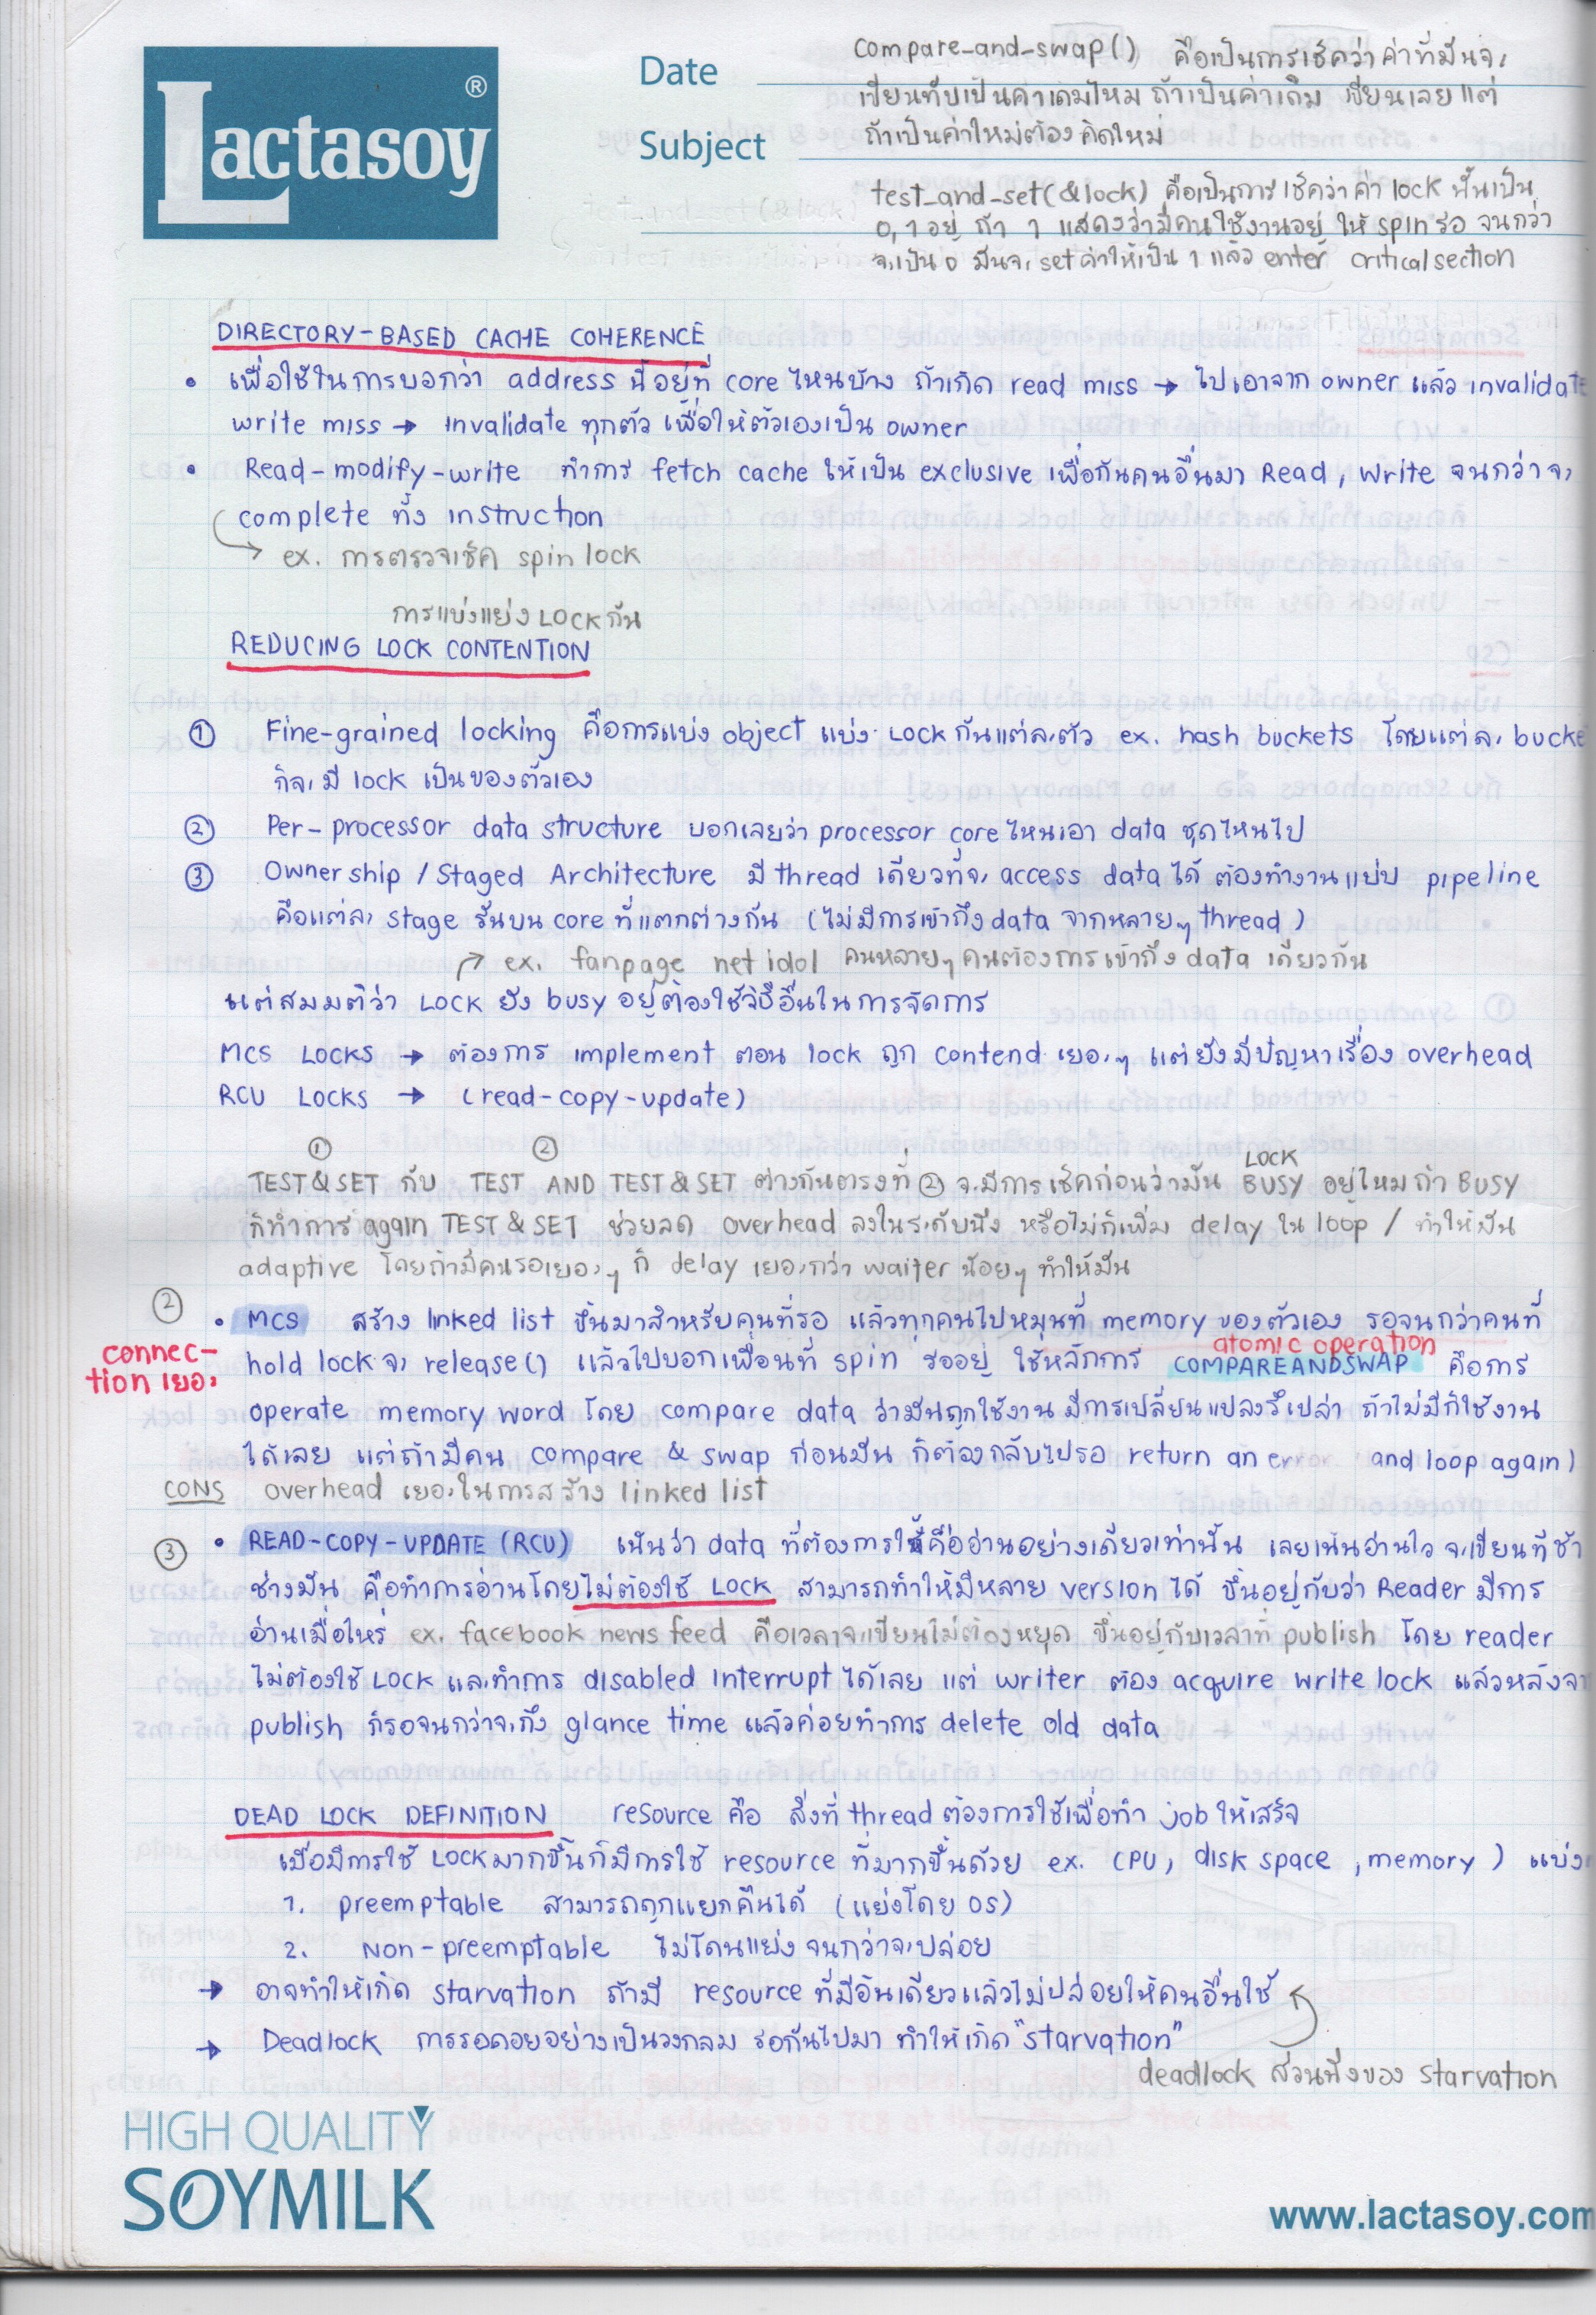 Lactasoy ®
Date
Subject
compare_and_swap() คือเป็นการเช็คว่าค่าที่มันจะ
เขียนทับเป็นค่าเดิมไหม ถ้าเป็นค่าเดิม เขียนเลย แต่
ถ้าเป็นค่าใหม่ต้องคิดใหม่
test_and_set(&lock) คือเป็นการเช็คว่าค่า lock นั้นเป็น
0,1 อยู่ ถ้า 1 แสดงว่ามีคนใช้งานอยู่ ให้ spin รอ จนกว่า
จะเป็น 0 มันจะ set ค่าให้เป็น 1 แล้ว enter critical section
DIRECTORY-BASED CACHE COHERENCE
• เพื่อใช้ในการบอกว่า address นี้อยู่ที่ core ไหนบ้าง ถ้าเกิด read miss → ไปเอาจาก owner แล้ว invalidate
write miss → invalidate ทุกตัว เพื่อให้ตัวเองเป็น owner
• Read-modify-write ทำการ fetch cache ให้เป็น exclusive เพื่อกันคนอื่นมา Read, Write จนกว่าจะ
complete ทั้ง instruction
ex. การตรวจเช็ค spin lock
การแบ่งแย่ง LOCK กัน
REDUCING LOCK CONTENTION
① Fine-grained locking คือการแบ่ง object แบ่ง LOCK กันแต่ละตัว ex. hash buckets โดยแต่ละ bucke
ก็จะมี lock เป็นของตัวเอง
② Per-processor data structure บอกเลยว่า processor core ไหนเอา data ชุดไหนไป
③ Ownership / Staged Architecture มี thread เดียวที่จะ access data ได้ ต้องทำงานแบบ pipeline
คือแต่ละ stage รันบน core ที่แตกต่างกัน (ไม่มีการเข้าถึง data จากหลายๆ thread)
ex. fanpage net idol คนหลายๆคนต้องการเข้าถึง data เดียวกัน
แต่สมมติว่า LOCK ยัง busy อยู่ต้องใช้วิธีอื่นในการจัดการ
MCS LOCKS → ต้องการ implement ตอน lock ถูก contend เยอะๆ แต่ยังมีปัญหาเรื่อง overhead
RCU LOCKS → (read-copy-update)
① ②
TEST&SET กับ TEST AND TEST&SET ต่างกันตรงที่ ② จะมีการเช็คก่อนว่ามัน LOCK BUSY อยู่ไหมถ้า BUSY
ก็ทำการ again TEST & SET ช่วยลด overhead ลงในระดับนึง หรือไม่ก็เพิ่ม delay ใน loop / ทำให้มัน
adaptive โดยถ้ามีคนรอเยอะๆ ก็ delay เยอะกว่า waiter น้อยๆ ทำให้มัน
② • MCS สร้าง linked list ขึ้นมาสำหรับคนที่รอ แล้วทุกคนไปหมุนที่ memory ของตัวเอง รอจนกว่าคนที่
connection เยอะ
atomic operation
hold lock จะ release() แล้วไปบอกเพื่อนที่ spin รออยู่ ใช้หลักการ COMPAREANDSWAP คือการ
operate memory word โดย compare data ว่ามันถูกใช้งาน มีการเปลี่ยนแปลงรึเปล่า ถ้าไม่มีก็ใช้งาน
ได้เลย แต่ถ้ามีคน compare & swap ก่อนมัน ก็ต้องกลับไปรอ return an error and loop again)
CONS overhead เยอะในการสร้าง linked list
③ • READ-COPY-UPDATE (RCU) เน้นว่า data ที่ต้องการใช้คืออ่านอย่างเดียวเท่านั้น เลยเน้นอ่านไว จะเขียนทีช้า
ช่างมัน คือทำการอ่านโดยไม่ต้องใช้ LOCK สามารถทำให้มีหลาย version ได้ ขึ้นอยู่กับว่า Reader มีการ
อ่านเมื่อไหร่ ex. facebook news feed คือเวลาจะเขียนไม่ต้องหยุด ขึ้นอยู่กับเวลาที่ publish โดย reader
ไม่ต้องใช้ LOCK และทำการ disabled interrupt ได้เลย แต่ writer ต้อง acquire write lock แล้วหลังจา
publish ก็รอจนกว่าจะถึง glance time แล้วค่อยทำการ delete old data
DEAD LOCK DEFINITION resource คือ สิ่งที่ thread ต้องการใช้เพื่อทำ job ให้เสร็จ
เมื่อมีการใช้ LOCK มากขึ้นก็มีการใช้ resource ที่มากขึ้นด้วย ex. CPU, disk space, memory) แบ่ง
1. preemptable สามารถถูกแยกคืนได้ (แย่งโดย OS)
2. Non-preemptable ไม่โดนแย่ง จนกว่าจะปล่อย
→ อาจทำให้เกิด starvation ถ้ามี resource ที่มีอันเดียวแล้วไม่ปล่อยให้คนอื่นใช้
→ Deadlock การรอคอยอย่างเป็นวงกลม รอกันไปมา ทำให้เกิด "starvation"
deadlock ส่วนนึงของ starvation
HIGH QUALITY
SOYMILK
www.lactasoy.com